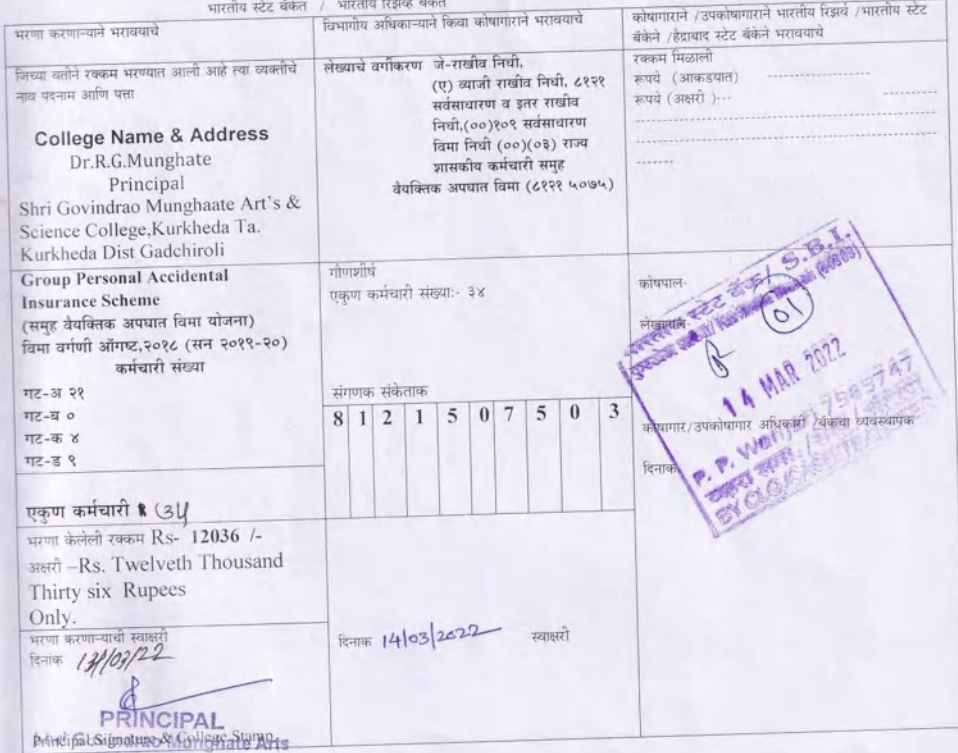 भारतीय स्टेट बँकेत / भारतीय रिझर्व्ह बँकेत
भरणा करणाऱ्याने भरावयाचे
जिच्या वतीने रक्कम भरण्यात आली आहे त्या व्यक्तीचे
नाव पदनाम आणि पत्ता
College Name & Address
Dr.R.G.Munghate
Principal
Shri Govindrao Munghaate Art's &
Science College,Kurkheda Ta.
Kurkheda Dist Gadchiroli
Group Personal Accidental
Insurance Scheme
(समुह वैयक्तिक अपघात विमा योजना)
विमा वर्गणी ऑगष्ट,२०१८ (सन २०१९-२०)
कर्मचारी संख्या
गट-अ २१
गट-ब ०
गट-क ४
गट-ड ९
एकुण कर्मचारी (34
भरणा केलेली रक्कम Rs- 12036 /-
अक्षरी –Rs. Twelveth Thousand
Thirty six Rupees
Only.
भरणा करणाऱ्याची स्वाक्षरी
दिनांक 13/03/22
PRINCIPAL
Principal Signature & College Stamp
विभागीय अधिकाऱ्याने किंवा कोषागाराने भरावयाचे
लेख्याचे वर्गीकरण जे-राखीव निधी,
(ए) व्याजी राखीव निधी, ८१२१
सर्वसाधारण व इतर राखीव
निधी,(००)१०९ सर्वसाधारण
विमा निधी (००)(०३) राज्य
शासकीय कर्मचारी समुह
वैयक्तिक अपघात विमा (८१२१ ५०७५)
गौणशीर्ष
एकुण कर्मचारी संख्या:- ३४
संगणक संकेताक
8 1 2 1 5 0 7 5 0 3
दिनाक 14/03/2022 स्वाक्षरी
कोषागाराने /उपकोषागाराने भारतीय रिझर्व /भारतीय स्टेट
बँकेने /हैद्राबाद स्टेट बँकेने भरावयाचे
रक्कम मिळाली
रूपये (आकडयात) ------------------
रूपये (अक्षरी )---
कोषपाल-
लेखापाल-
स्टेट बँक/ S.B.I.
01
14 MAR 2022
कोषागार/उपकोषागार अधिकारी /बँकेचा व्यवस्थापक
दिनांक